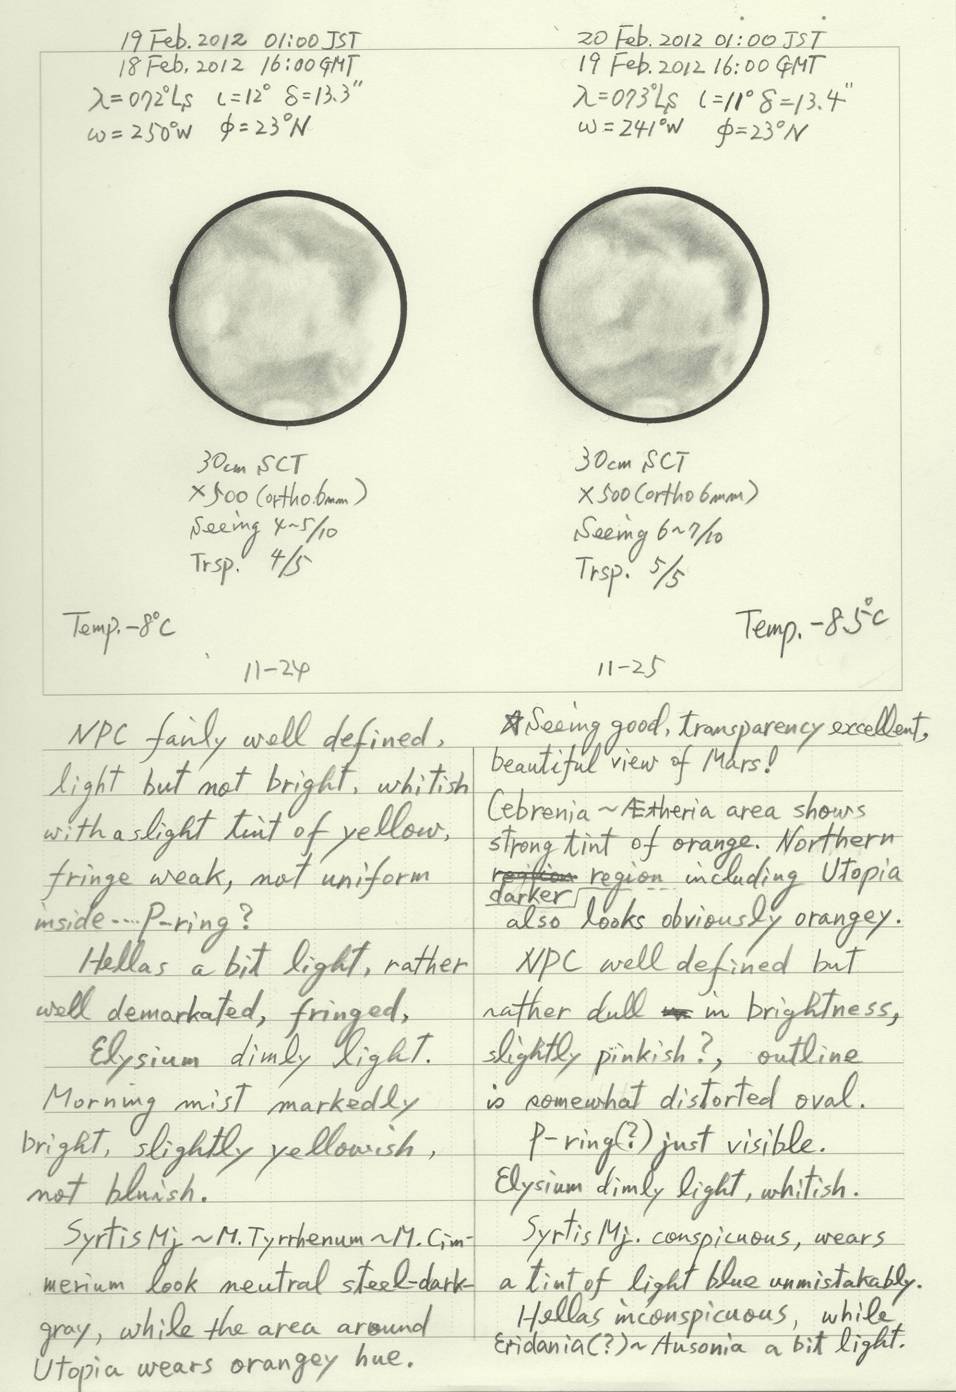 19 Feb. 2012 01:00 JST
18 Feb. 2012 16:00 GMT
λ=072°Ls ι=12° δ=13.3"
ω=250°W φ=23°N
30cm SCT
×500 (ortho.6mm)
Seeing 4~5/10
Trsp. 4/5
Temp. -8°C
11-24
20 Feb. 2012 01:00 JST
19 Feb. 2012 16:00 GMT
λ=073°Ls ι=11° δ=13.4"
ω=241°W φ=23°N
30cm SCT
×500 (ortho 6mm)
Seeing 6~7/10
Trsp. 5/5
Temp. -8.5°C
11-25
NPC fairly well defined,
light but not bright, whitish
with a slight tint of yellow,
fringe weak, not uniform
inside---- P-ring?
Hellas a bit light, rather
well demarkated, fringed,
Elysium dimly light.
Morning mist markedly
bright, slightly yellowish,
not bluish.
Syrtis Mj ~ M. Tyrrhenum ~ M. Cim-
merium look neutral steel-dark-
gray, while the area around
Utopia wears orangey hue.
☆Seeing good, transparency excellent,
beautiful view of Mars!
Cebrenia ~ Ætheria area shows
strong tint of orange. Northern
darker region including Utopia
also looks obviously orangey.
NPC well defined but
rather dull in brightness,
slightly pinkish?, outline
is somewhat distorted oval.
P-ring(?) just visible.
Elysium dimly light, whitish.
Syrtis Mj. conspicuous, wears
a tint of light blue unmistakably.
Hellas inconspicuous, while
Eridania(?)~ Ausonia a bit light.